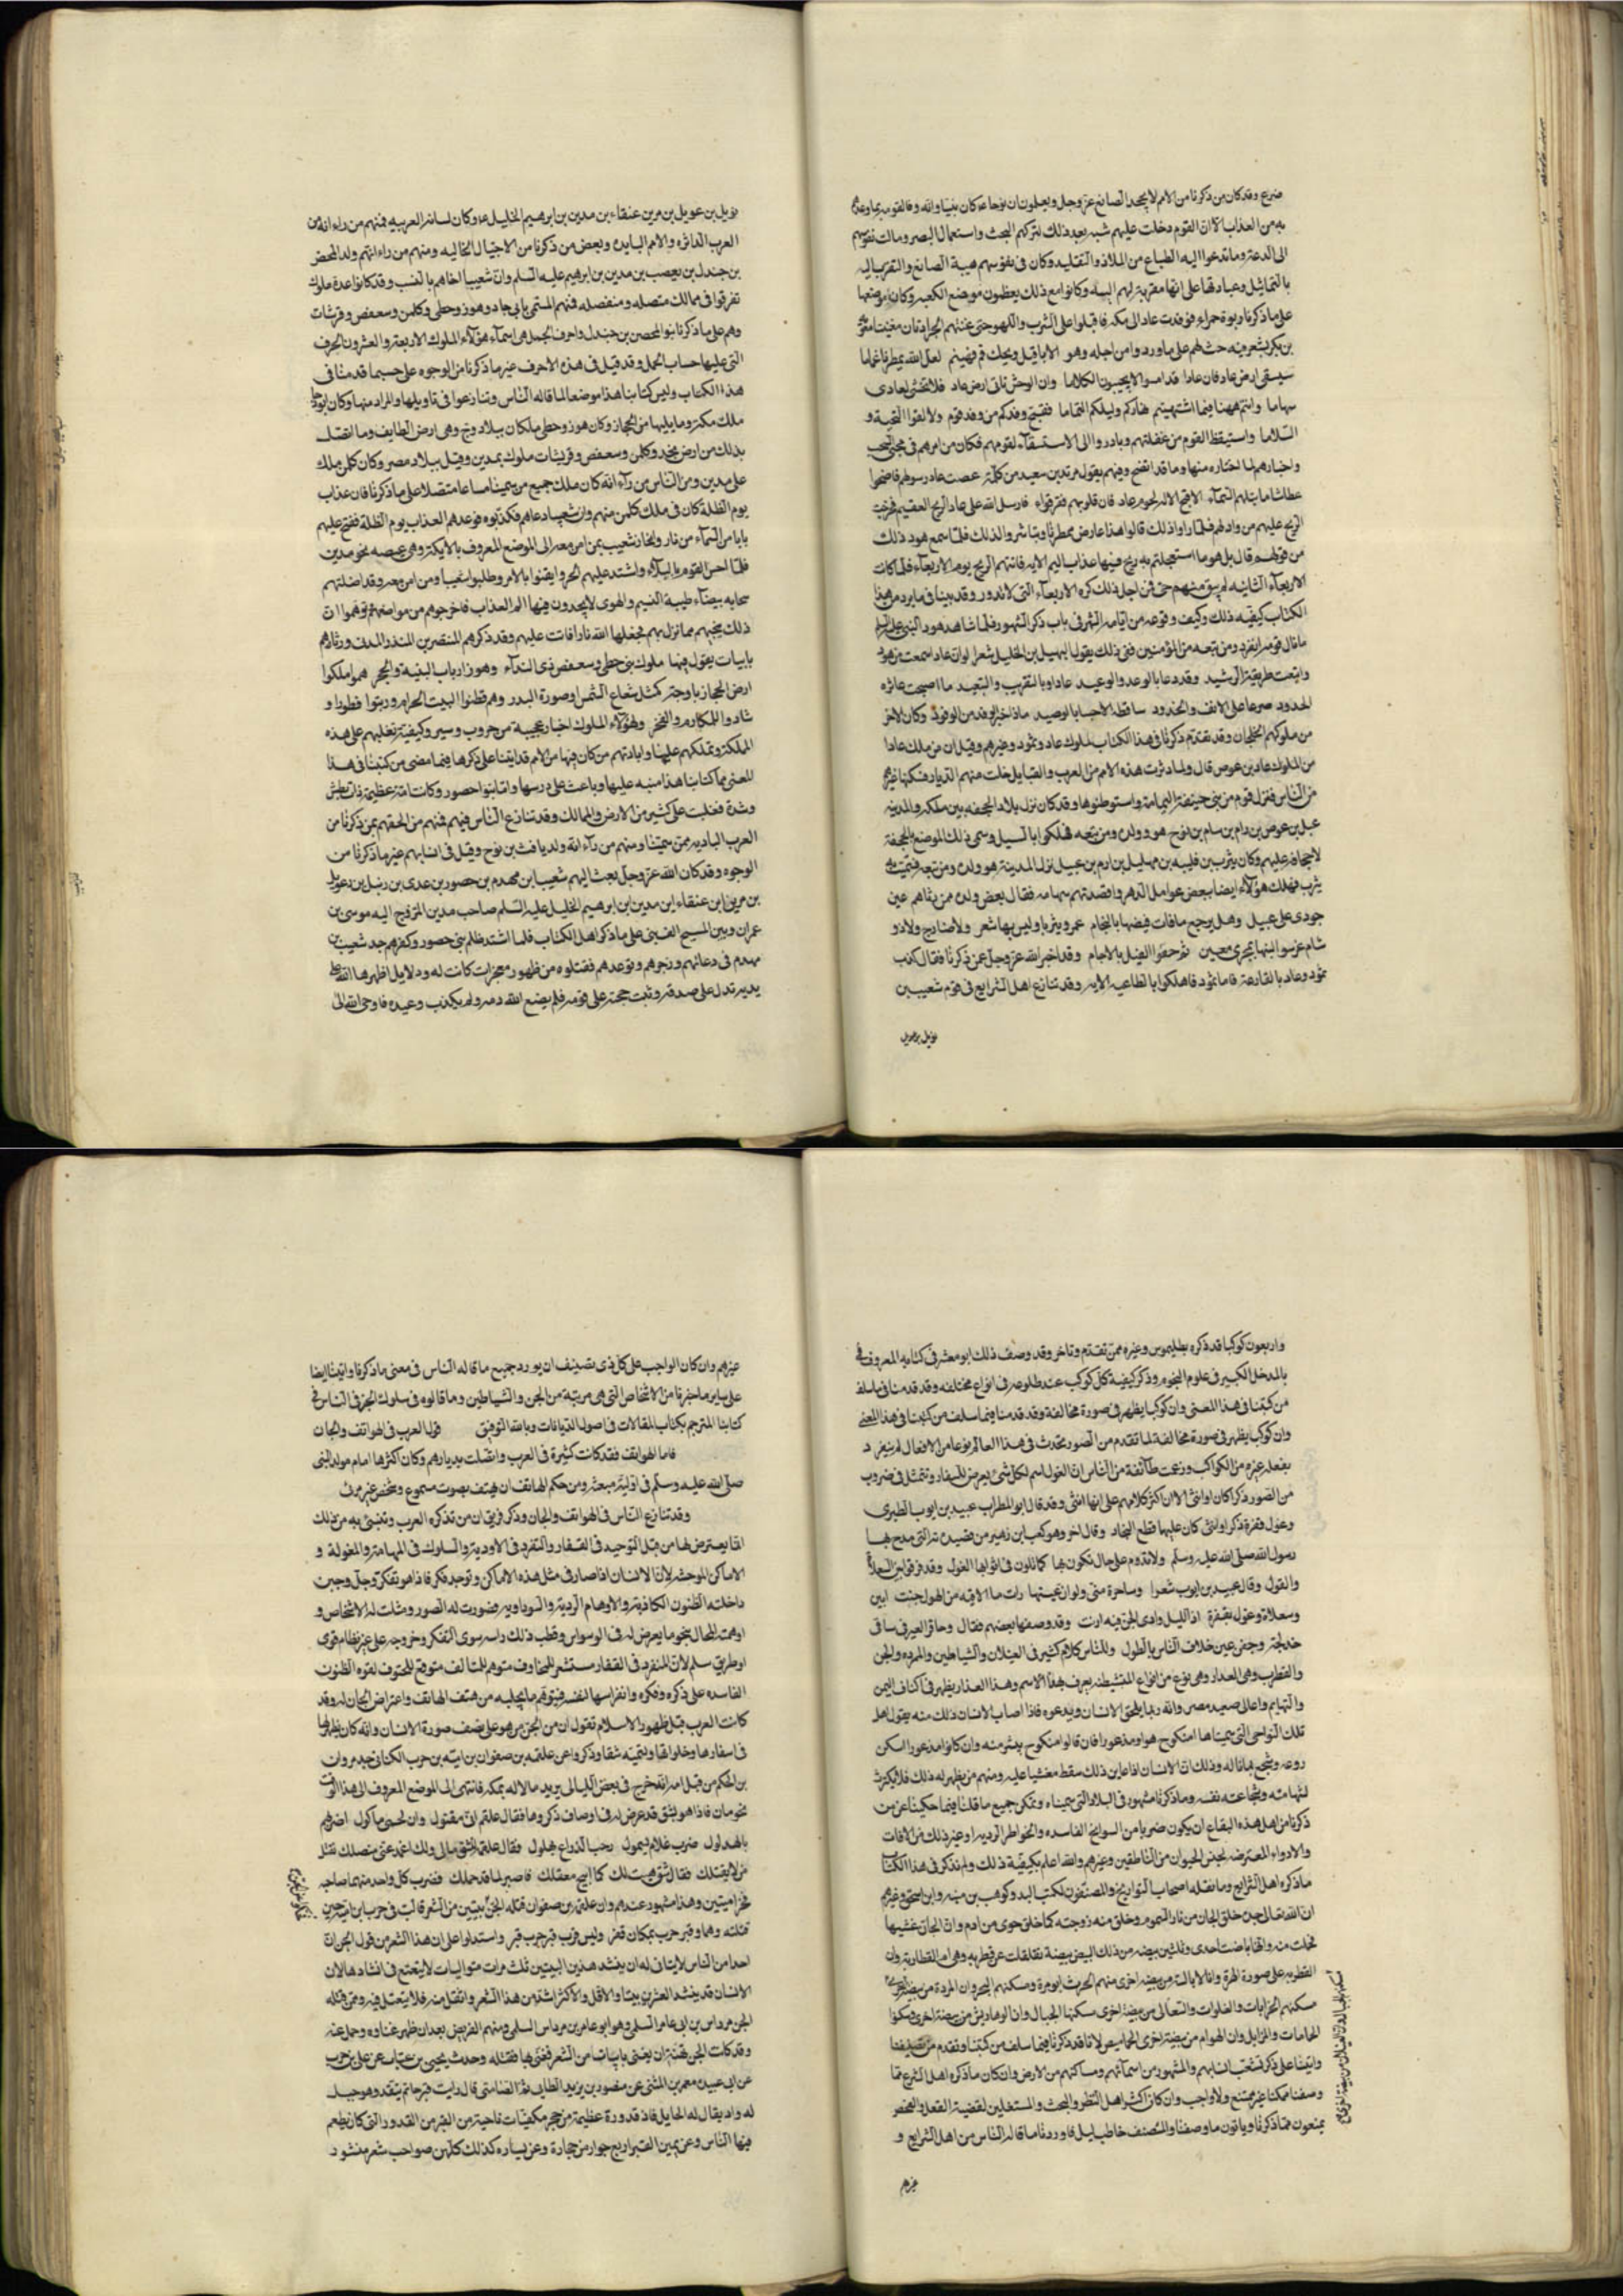 صرع وقد كان من ذكرنا من الامم لا يجحد الصانع عز وجل ويعلمون ان نوحا عم كان نبيا وانه وفا لقومه بما وعدهم
به من العذاب الا ان القوم دخلت عليهم شبه بعد ذلك لتركهم البحث واستعمال البصر ومالت نفوسهم
الى الدعة وما تدعوا اليه الطباع من الملاذ والتقليد وكان فى نفوسهم هيبة الصانع والتقرب اليه
بالتماثيل وعبادتها على انها مقربة لهم اليه وكانوا مع ذلك يعظمون موضع الكعبه وكان موضعها
على ما ذكرنا ربوة حمراء فوفدت عاد الى مكه فاقبلوا على الشرب واللهو حتى غنتهم الجرادتان مغنيتا معوية
بن بكر بشعر فيه حث لهم على ما وردوا من اجله وهو الا يا قيل ويحك قم فهينم لعل الله يمطرنا غماما
سيسقى ارض عاد فان عادا قد امسوا لا يبينون الكلاما وان الوحش تاتى ارض عاد فلا تخشى لعادى
سهاما وانتم ههنا فيما اشتهيتم نهاركم وليلكم التماما فقبح وفدكم من وفد قوم ولا لقوا التحية و
السلاما واستيقظ القوم من غفلتهم وبادروا الى الاستسقاء لقومهم فكان من امرهم فى مجئ السحب
واختيارهم لما اختاره منها وما قد اتضح وفيهم يقول مرثد بن سعد من كلمة عصت عاد رسولهم فاضحوا
عطاشا ما تبلهم السماء الا قبح الاله حلوم عاد فان قلوبهم قفر هواء فارسل الله على عاد الريح العقيم فخرجت
الريح عليهم من واد لهم فلما راوا ذلك قالوا هذا عارض ممطرنا وتباشروا لذلك فلما سمع هود ذلك
من قولهم قال بل هو ما استعجلتم به ريح فيها عذاب اليم الايه فاتتهم الريح يوم الاربعاء فلما كانت
الاربعاء الثانيه لم يبق منهم حى فمن اجل ذلك كره الاربعاء التى لا تدور وقد بينا فيما يرد من هذا
الكتاب كيفيه ذلك وكيف وقوعه من ايام الشهر فى باب ذكر الشهور فلما شاهد هود النبى عليه السلم
ما نال قومه انفرد ومن تبعه من المؤمنين ففى ذلك يقول الهيل بن الخليل شعرا لو ان عاد اسمعت من هود
واتبعت طريقة الرشيد وقد دعا بالوعد والوعيد عادا وبالتقريب والتبعيد ما اصبحت عاثره
الجدود صرعا على الانف والخدود ساقطه الاجساد بالوصيد ماذا جنى الوفد من الوفود وكان الاخر
من ملوكهم الخلجان وقد تقدم ذكرنا فى هذا الكتاب لملوك عاد وثمود وغيرهم وقيل ان من ملك عادا
من الملوك عاد بن عوص قال ولما دثرت هذه الامم من العرب والقبايل خلت منهم الديار فسكنها غيرهم
من الناس فنزل قوم من بنى حنيفة اليمامة واستوطنوها وقد كان نزل بلاد الجحفه بين مكه والمدينه
عبيل بن عوص بن ارم بن سام بن نوح هو وولده ومن تبعه فهلكوا بالسيل وسمى ذلك الموضع بالجحفة
لاجحافه عليهم وكان يثرب بن قانيه بن مهليل بن ارم بن عبيل نزل المدينة هو وولده ومن تبعه فسميت به
يثرب فهلك هؤلاء ايضا ببعض عوامل الدهر واقصدتهم سهامه فقال بعض ولده ممن رثاهم عين
جودى على عبيل وهل يرجع ما فات فيضها بانسجام عمروا يثربا وليس بها شعر ولا صارخ ولا ذو
سنام غرسوا لينها بمجرى معين ثم حفوا الفسيل بالاجام وقد اخبر الله عز وجل عمن ذكرنا فقال كذبت
ثمود وعاد بالقارعة فاما ثمود فاهلكوا بالطاغيه الايه وقد تنازع اهل الشرايع فى قوم شعيب بن
نويل بن عويل
نويل بن عويل بن مرين عنقاء بن مدين بن ابرهيم الخليل عم وكان لسانه العربيه فمنهم من راء انه من
العرب الداثره والامم البايده وبعض من ذكرنا من الاجيال الخاليه ومنهم من راء انهم ولد المحض
بن جندل بن يعصب بن مدين بن ابرهيم عليه السلم وان شعيبا اخاهم بالنسب وقد كانوا عدة ملوك
تفرقوا فى ممالك متصله ومنفصله فمنهم المسمى بابى جاد وهوز وحطى وكلمن وسعفص وقرشات
وهم على ما ذكرنا بنو المحصن بن جندل واحرف الجمل هى اسماء هؤلاء الملوك الاربعة والعشرون الحرف
التى عليها حساب الجمل وقد قيل فى هذه الاحرف غير ما ذكرنا من الوجوه على حسب ما قدمنا فى
هذا الكتاب وليس كتابنا هذا موضعا لما قاله الناس وتنازعوا فى تاويلها والمراد منها وكان ابو جاد
ملك مكة وما يليها من الحجاز وكان هوز وحطى ملكان ببلاد وج وهى ارض الطايف وما اتصل
بذلك من ارض نجد وكلمن وسعفص وقريشات ملوك بمدين وقيل ببلاد مصر وكان كلمن ملك
على مدين ومن الناس من راء انه كان ملك جميع من سمينا مساعا متصلا على ما ذكرنا فان عذاب
يوم الظلة كان فى ملك كلمن منهم وان شعيبا دعاهم فكذبوه فوعدهم العذاب يوم الظلة ففتح عليهم
بابا من السماء من نار وانحاز شعيب بمن امن معه الى الموضع المعروف بالايكة وهى غيضه نحو مدين
فلما احس القوم بالبلاء واشتد عليهم الحر وايقنوا بالامر وطلبوا شعيبا ومن امن معه وقد اضلتهم
سحابه بيضاء طيبة النسيم والهوى لا يجدون فيها الم العذاب فاخرجوهم من مواضعهم وتوهموا ان
ذلك ينجيهم مما نزل بهم فجعلها الله نارا فاتت عليهم وقد ذكرهم المنتصر بن المنذر المدنى ورثاهم
بابيات يقول فيها ملوك بنى حطى وسعفص ذى النداء وهوز ارباب البنيه والحجر هم املكوا
ارض الحجاز باوجه كمثل شعاع الشمس او صورة البدر وهم قطنوا البيت الحرام ورتبوا فطورا و
شادوا للمكارم والفخر ولهؤلاء الملوك اخبار عجيبة من حروب وسير وكيفية تغلبهم على هذه
المملكة وتملكهم عليها وابادتهم من كان فيها من الامم قد اتينا على ذكرها فيما مضى من كتبنا فى هذا
المعنى مما كتابنا هذا منبه عليها وباعث على درسها واما بنوا حصور وكانت امة عظيمة ذات بطش
وشدة فغلبت على كثير من الارض والممالك وقد تنازع الناس فيهم فمنهم من الحقهم بمن ذكرنا من
العرب الباديه ممن سمينا ومنهم من راء انه ولد يافث بن نوح وقيل فى انسابهم غير ما ذكرنا من
الوجوه وقد كان الله عز وجل بعث اليهم شعيبا بن مهدم بن حصور بن عدى بن رنبل بن رعويل
بن مرين ابن عنقاء ابن مدين ابن ابرهيم الخليل عليه السلم صاحب مدين المتزوج اليه موسى بن
عمران وبين المسيح الف سنى على ما ذكر اهل الكتاب فلما اشتد ظلم بنى حصور وكفرهم جد شعيب بن
مهدم فى دعائهم وزجرهم وتوعدهم فقتلوه من ظهور معجزات كانت له ودلايل اظهرها الله على
يديه تدل على صدقه وثبت حجته على قومه فلم يضع الله دمه ولم يكذب وعيده فاوحى الله الى
واربعون كوكبا قد ذكره بطليموس وغيره ممن تقدم وتاخر وقد وصف ذلك ابو معشر فى كتابه المعروف
بالمدخل الكبير فى علوم النجوم وذكر كيفية كل كوكب عند طلوعه فى انواع مختلفه وقد قدمنا فيما سلف
من كتبنا فى هذا المعنى وان كوكبا يظهر فى صورة مخالفة وقد قدمنا فيما سلف من كتبنا فى هذا المعنى
وان كوكبا يظهر فى صورة مخالفة لما تقدم من الصور تحدث فى هذا العالم نوعا من الافعال لم ينفرد
بفعله غيره من الكواكب وزعمت طائفة من الناس ان الغول اسم لكل شئ يعرض للسفار وتتمثل فى ضروب
من الصور ذكرا كان او انثى الا ان اكثر كلامهم على انها انثى وقد قال ابو المطراب عبيد بن ايوب الطبرى
وغول قفرة ذكرا وانثى كان عليها قطع البجاد وقال اخر وهو كعب بن زهير من قصيدته التى مدح بها
رسول الله صلى الله عليه وسلم ولا تدوم على حال تكون بها كما تلون فى اثوابها الغول وقد فرقوا بين السعلاة
والغول وقال عبيد بن ايوب شعرا وساحرة منى ولو ان عينها رات ما الاقيه من الهول جنت ابين
وسعلاة وغول بقفرة اذا الليل وادى الجن فيه ارنت وقد وصفها بعضهم فقال وحافر العير فى ساق
خدلجة وجفن عين خلاف الناس بالطول وللناس كلام كثير فى الغيلان والشياطين والمرده والجن
والقطرب وهى العدار وهى نوع من انواع المتشيطنه يعرف بهذا الاسم وهذا العدار يظهر فى اكناف اليمن
والتهايم واعالى صعيد مصر وانه ربما يلحق الانسان ويدعوه فاذا اصاب الانسان ذلك منه يقول اهل
تلك النواحى التى سميناها امنكوح هو او مذعور فان قالوا منكوح يئس منه وان كانوا مذعورا سكن
روعه وشجع بما ناله وذلك ان الانسان اذا عاين ذلك سقط مغشيا عليه ومنهم من يظهر له ذلك فلا يكترث
لشهامته وشجاعته نفسه وما ذكرنا مشهور فى البلاد التى سميناه ويمكن جميع ما قلنا فيما حكينا عن من
ذكرنا من اهل هذه البقاع ان يكون ضربا من السوانح الفاسده والخواطر الرديه او غير ذلك من الافات
والادواء المعترضه لجنس الحيوان من الناطقين وغيرهم والله اعلم بكيفية ذلك ولم نذكر فى هذا الكتاب
ما ذكره اهل الشرايع وما نقله اصحاب التواريخ والمصنفون لكتب البدو كوهب بن منبه وابن اسحق وغيرهم
ان الله تعالى حين خلق الجان من نار السموم وخلق منه زوجته كما خلق حوى من ادم وان الجان غشيها
فحملت منه وانها باضت احدى وثلثين بيضه من ذلك البيض بيضة تفلقت عن قطربه وهى ام القطاربه وان
القطربه على صورة الهرة وان الابالسة من بيضه اخرى منهم الحرث ابو مرة ومسكنهم البحر وان المردة من بيضه اخرى
مسكنهم الخرابات والفلوات والتعالى من بيضه اخرى سكنها الجبال وان الوهاديش من بيضة اخرى سكنوا
الحمامات والمزابل وان الهوام من بيضة اخرى الخاميص لانا قد ذكرنا فيما سلف من كتبنا وتقدم من تصنيفنا
واتينا على ذكر تشعب انسابهم والمشهور من اسمائهم ومساكنهم من الارض وان كان ما ذكره اهل الشرع مما
وصفنا ممكنا غير ممتنع ولا واجب وان كان اكثر اهل النظر والبحث والمستعملين لقضية العقل والفحص
يمنعون مما ذكرنا وياتون ما وصفنا والمصنف حاطب ليل فاوردنا ما قاله الناس من اهل الشرايع و
غيرهم
غيرهم وان كان الواجب على كل ذى تصنيف ان يورد جميع ما قاله الناس فى معنى ما ذكرنا واتينا ايضا
على ساير ما خبرنا من الاشخاص التى هى مرتبة من الجن والشياطين وما قالوه فى سلوك الجن فى الناس فى
كتابنا المترجم بكتاب المقالات فى اصول الديانات وبالله التوفيق قول العرب فى الهواتف والجان
فاما الهواتف فقد كانت كثيرة فى العرب واتصلت بديارهم وكان اكثرها امام مولد النبى
صلى الله عليه وسلم فى اولية مبعثه ومن حكم الهاتف ان يهتف بصوت مسموع وشخص غير مرئى
وقد تنازع الناس فى الهواتف والجان وذكر فريق ان من تذكره العرب وتنبئ به من ذلك
انما يعترض لها من قبل التوحيد فى القفار والتفرد فى الاودية والسلوك فى المهامة والمغولة و
الاماكن الموحشه لان الانسان اذا صار فى مثل هذه الاماكن وتوحد فكر فاذا هو تفكر وجل وجبن
داخلته الظنون الكاذبة والاوهام الردية والسوداويه فصورت له الصور ومثلت له الاشخاص و
اوهمته المحال بنحو ما يعرض له فى الوسواس وقطب ذلك راسه سوى التفكر وخروجه على غير نظام قوى
او طريق سلم لان المنفرد فى القفار مستشعر للمخاوف متوهم للمتالف متوقع للحتوف لقوه الظنون
الفاسده على ذكره وفكره وانغراسها النفسه فيتوهم ما يخليه من هتف الهاتف واعتراض الجان له وقد
كانت العرب قبل ظهور الاسلام تقول ان من الجن من هو على نصف صورة الانسان وانه كان يظهر لها
فى اسفارها وخلواتها وتسميه شقا وذكروا عن علقمه بن صفوان بن اميه بن حرب الكنانى جد مروان
بن الحكم من قبل امه انه خرج فى بعض الليالى يريد مالا له بمكه فانتهى الى الموضع المعروف الى هذا الوقت
بحومان فاذا هو بشق قد عرض له فى اوصاف ذكروها فقال علقم انى مقتول وان لحمى ماكول اضربهم
بالهدلول ضرب غلام شمول رحب الذراع بهلول فقال علقمة شق مالى ولك اغمد عنى منصلك تقتل
من لا يقتلك فقال شق هيت لك كما ابيح معقلك فاصبر لما قد حم لك فضرب كل واحد منهما صاحبه
فخرا ميتين وهذا مشهور عندهم وان علقمه بن صفوان قتله الجن بيتين من الشعر قالت فى حرب ابن اميه حين
قتلته وهما وقبر حرب بمكان قفر وليس قرب قبر حرب قبر واستدلوا على ان هذا الشعر من قول الجن ان
احدا من الناس لا يتاتى له ان ينشد هذين البيتين ثلث مرات متواليات لا يتعتع فى انشادها لان
الانسان قد ينشد العشرين بيتا والاقل والاكثر اشد من هذا الشعر واثقل منه فلا يتعتل فيه وممن قتله
الجن مرداس بن ابى عامر السلمى وهو ابو عامر بن مرداس السلمى ومنهم الغريض بعد ان ظهر غناوه وحمل عنه
وقد كانت الجن نهته ان يغنى بابيات من الشعر فغنى بها فقتله وحدث يحيى بن عتاب عن على بن حرب
عن ابى عبيده معمر بن المثنى عن منصور بن يزيد الطايى ثم الصامتى قال رايت قبر حاتم ببقه وهو جبل
له واد يقال له الحايل فاذا قدورة عظيمة من حجر مكفيات ناحية من القبر من القدور التى كان يطعم
فيها الناس وعن يمين القبر اربع جوار من حجارة وعن يساره كذلك كلهن صواحب شعر منشود